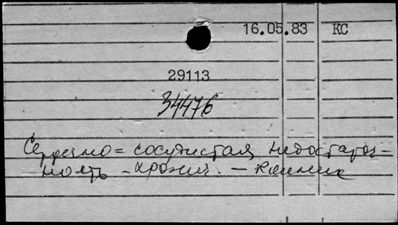 16.05.83 КС
29113
34476
Сердечно = сосудистая недостаточ-
ность - хронич. - клиника